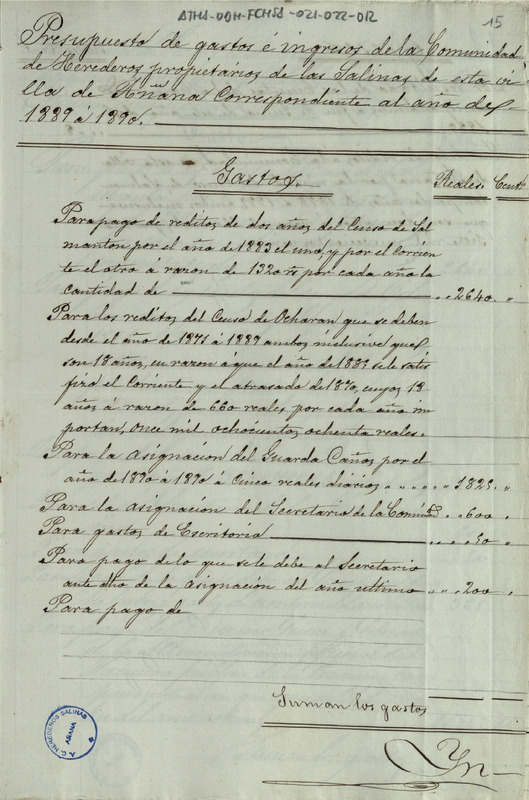 ATHA-DAH-FCHSA-021-022-012
15
Presupuesto de gastos é ingresos de la Comunidad
de Herederos propietarios de las Salinas de esta vi
lla de Añana correspondiente al año de
1889 á 1890.
Gastos.
Reales. Cent.
Para pago de reditos de dos años del Censo de Sal
manton por el año de 1883 el uno, y por el corrien
te el otro á razon de 1320 rs por cada año la
cantidad de " " 2640. "
Para los reditos del Censo de Ocharan que se deben
desde el año de 1871 á 1889 ambos inclusive que
son 18 años, en razon á que el año de 1883 se le satis
fizo el corriente y el atrasado de 1870, cuyos 18
años á razon de 660 reales por cada año im
portan, once mil ochocientos ochenta reales.
Para la asignacion del Guarda Caños por el
año de 1890 á 1890 á cinco reales diarios " " " " " " 1825. "
Para la asignacion del Secretario de la Comunidd " " 600 "
Para gastos de Escritorio " " 50 "
Para pago de lo que se le debe al Secretario
ante dho de la asignacion del año ultimo " " 200 "
Para pago de
Suman los gastos
A. C. HEREDEROS SALINAS
AÑANA